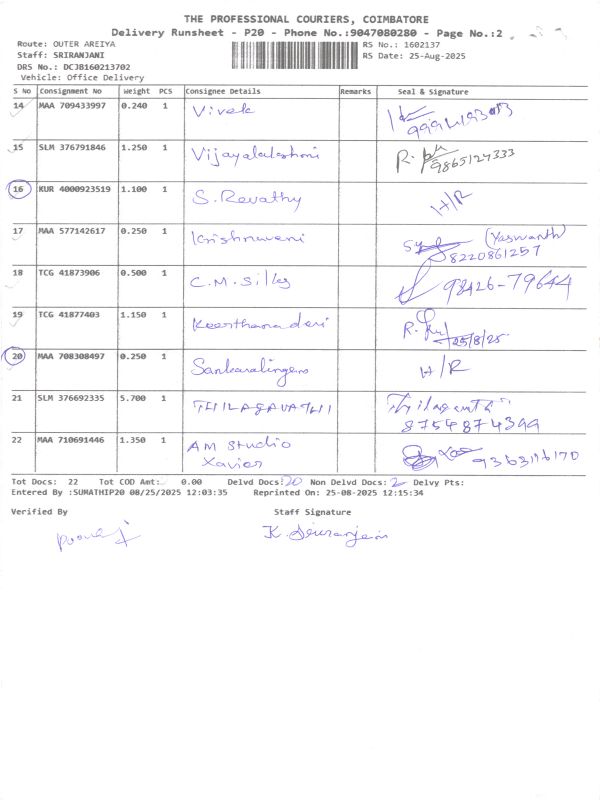 THE PROFESSIONAL COURIERS, COIMBATORE
Delivery Runsheet - P20 - Phone No.:9047080280 - Page No.:2
Route: OUTER AREIYA
RS No.: 1602137
Staff: SRIRANJANI
RS Date: 25-Aug-2025
DRS No.: DCJB160213702
Vehicle: Office Delivery
S No Consignment No Weight PCS Consignee Details Remarks Seal & Signature
14 MAA 709433997 0.240 1 Vivek
15 SLM 376791846 1.250 1 Vijayalakshmi R. 9865127333
16 KUR 4000923519 1.100 1 S. Revathy H/R
17 MAA 577142617 0.250 1 Krishnaveni (Yaswanth)
8220861257
18 TCG 41873906 0.500 1 C.M. Silks 98426-79644
19 TCG 41877403 1.150 1 Keerthana devi R. 25/8/25
20 MAA 708308497 0.250 1 Sankaralingam H/R
21 SLM 376692335 5.700 1 THILAGAVATHI
8754874399
22 MAA 710691446 1.350 1 AM Studio
Xavier
Tot Docs: 22 Tot COD Amt: 0.00 Delvd Docs: 20 Non Delvd Docs: 2 Delvy Pts:
Entered By :SUMATHIP20 08/25/2025 12:03:35 Reprinted On: 25-08-2025 12:15:34
Verified By Staff Signature